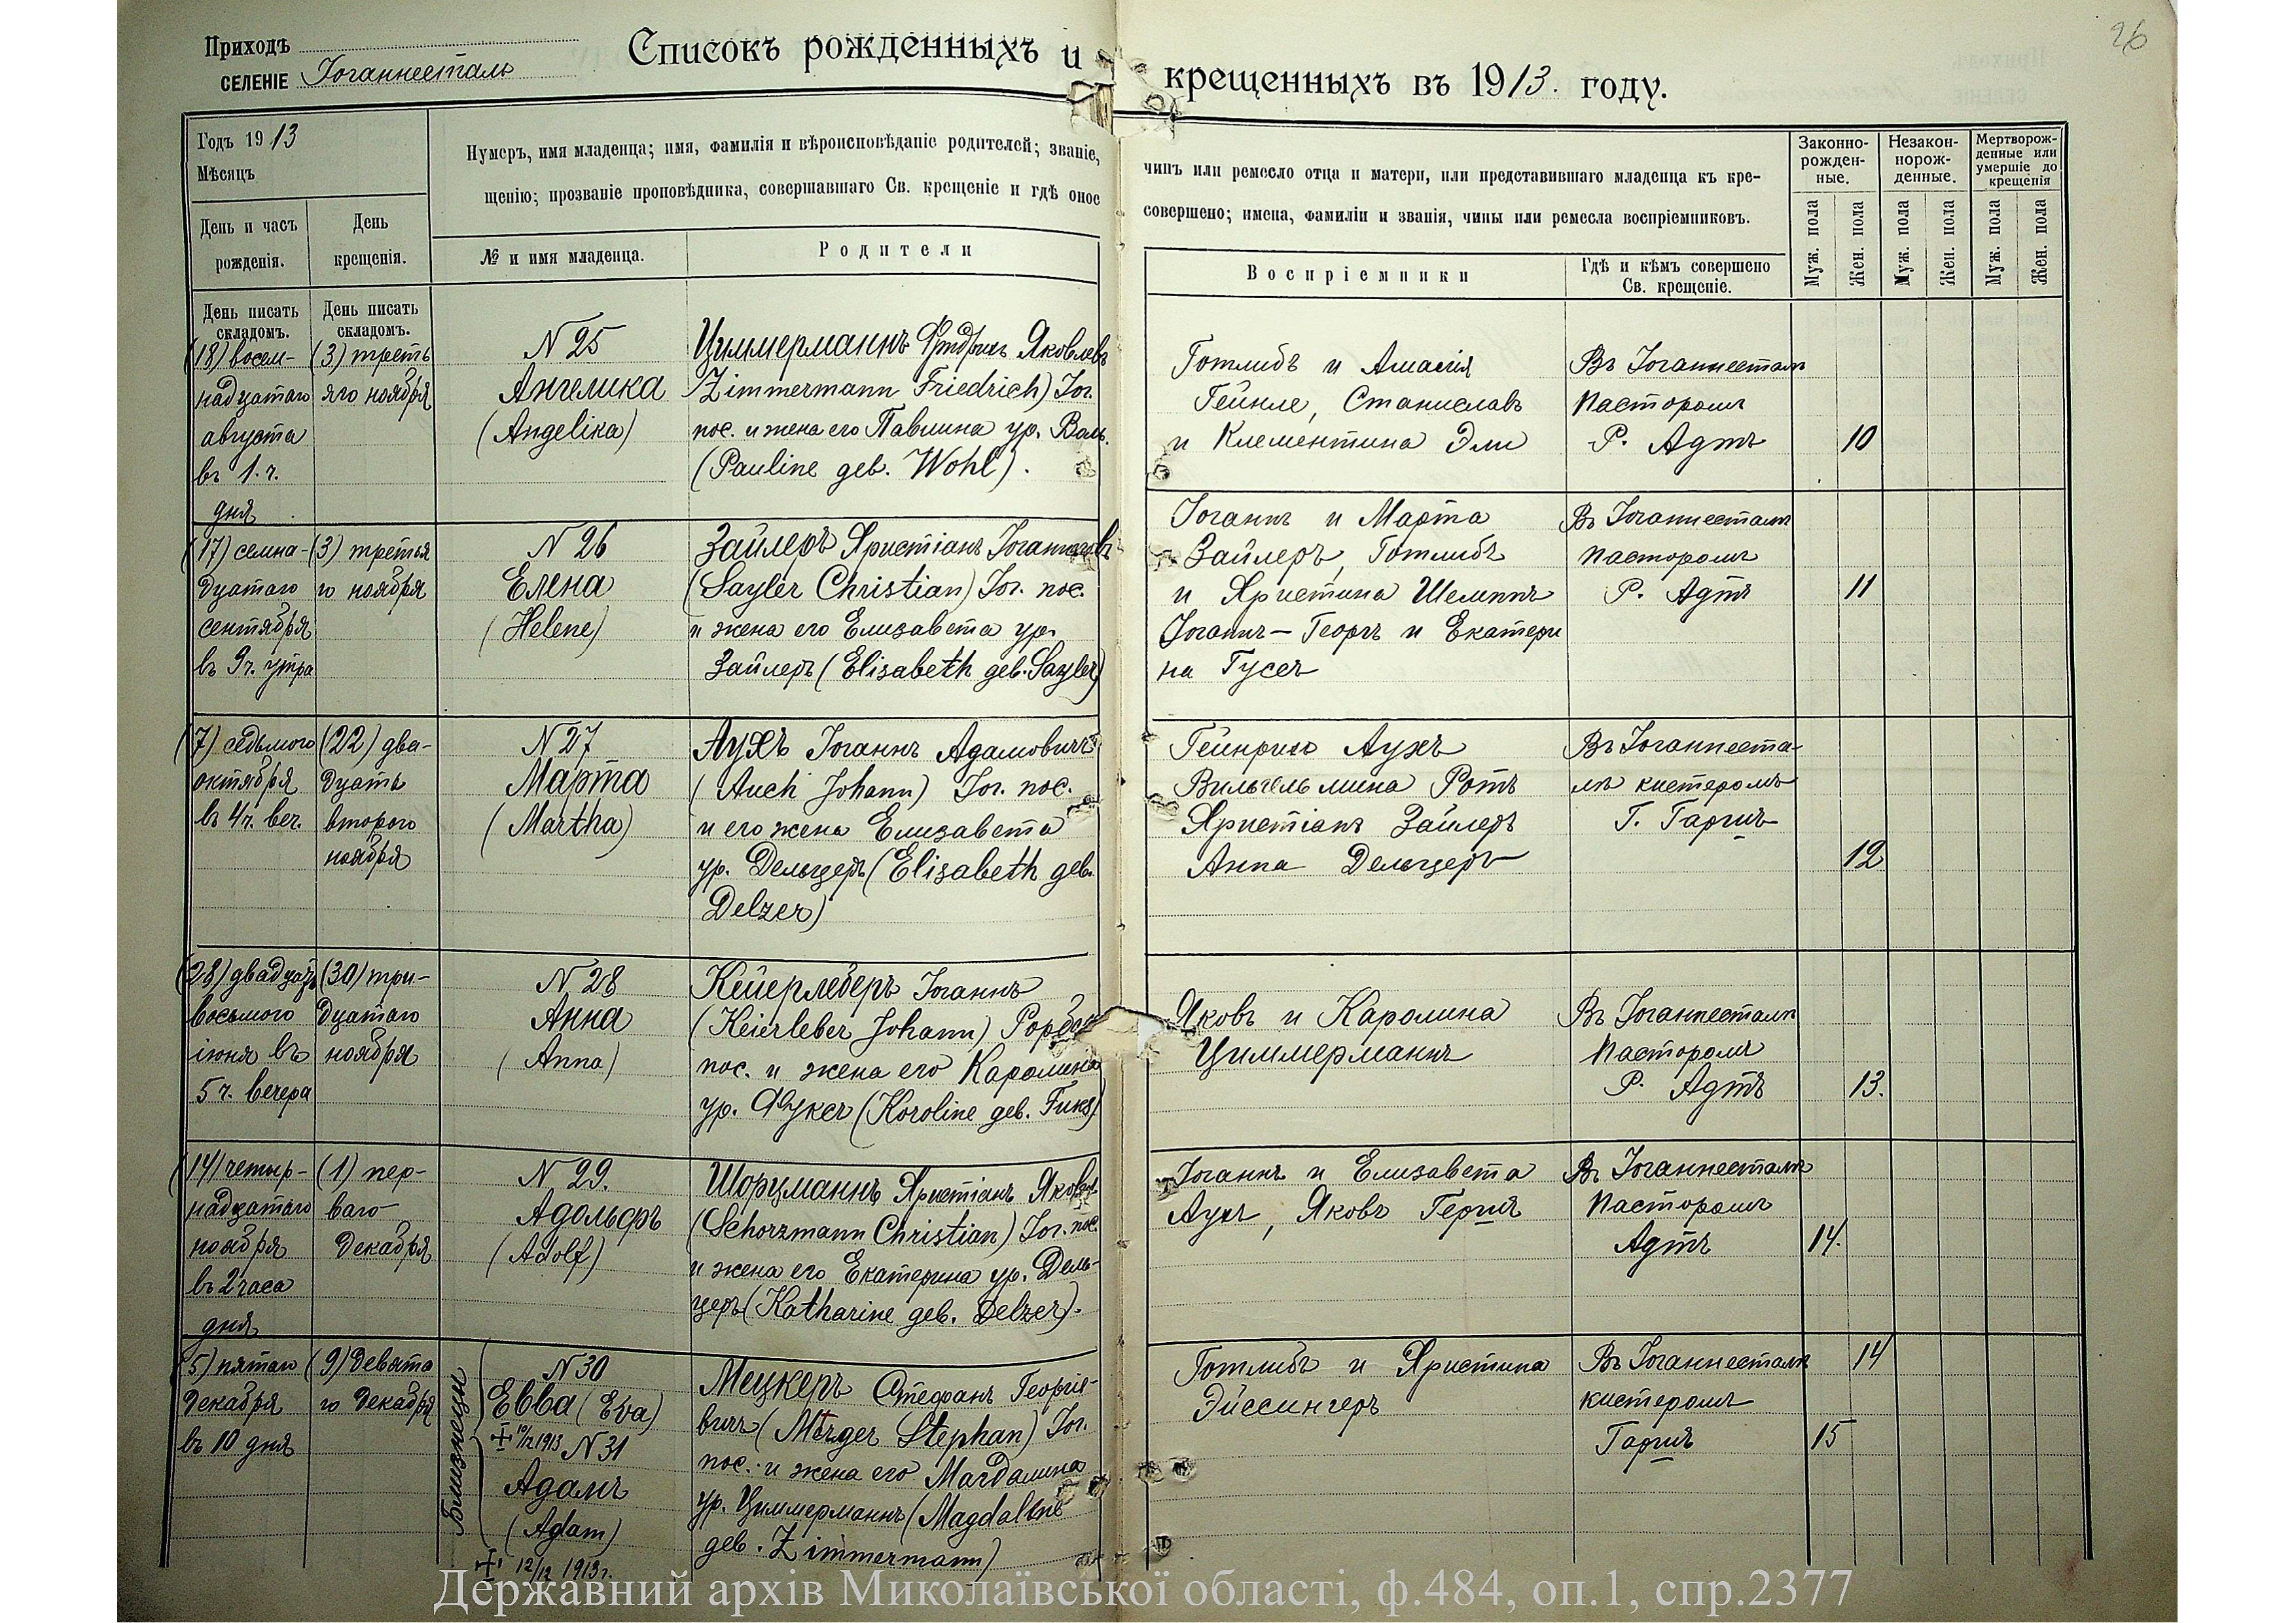 26
Приходъ
СЕЛЕНІЕ Іоганнесталь
Списокъ рожденныхъ и крещенныхъ въ 1913. году.
Годъ 1913
Мѣсяцъ
Нумеръ, имя младенца; имя, фамилія и вѣроисповѣданіе родителей; званіе, чинъ или ремесло отца и матери, или представившаго младенца къ кре-
щенію; прозваніе проповѣдника, совершавшаго Св. крещеніе и гдѣ оное совершено; имена, фамиліи и званія, чины или ремесла воспріемниковъ.
Законно-
рожден-
ные.
Незакон-
норож-
денные.
Мертворож-
денные или
умершіе до
крещенія
День и часъ
рожденія.
День
крещенія.
№ и имя младенца.
Родители
Воспріемники
Гдѣ и кѣмъ совершено
Св. крещеніе.
Муж. пола
Жен. пола
Муж. пола
Жен. пола
Муж. пола
Жен. пола
День писать
складомъ.
День писать
складомъ.
(18) восем-
надцатаго
августа
въ 1. ч.
дня
(3) треть
яго ноября
N 25
Ангелика
(Angelika)
Циммерманнъ Фридрихъ Яковлевъ
(Zimmermann Friedrich) Іог.
пос. и жена его Павлина ур. Воль.
(Pauline geb. Wohl).
Готлибъ и Амалія
Гейнле, Станиславъ
и Клементина Эли
Въ Іоганнесталѣ
Пасторомъ
Р. Адтъ
10
(17) семна-
дцатаго
сентября
въ 9 ч. утра
(3) третья
го ноября
N 26
Елена
(Helene)
Зайлеръ Христіанъ Іоганнесовъ
(Sayler Christian) Іог. пос.
и жена его Елизавета ур.
Зайлеръ (Elisabeth geb. Sayler)
Іоганнъ и Марта
Зайлеръ, Готлибъ
и Христина Шемппъ
Іоганнъ-Георгъ и Екатери
на Гусеъ
Въ Іоганнесталѣ
пасторомъ
Р. Адтъ
11
(7) седьмого
октября
въ 4 ч. веч.
(22) два-
дцать
второго
ноября
N 27
Марта
(Martha)
Аухъ Іоганнъ Адамовичъ
(Auch Johann) Іог. пос.
и его жена Елизавета
ур. Дельцеръ (Elisabeth geb.
Delzer)
Гейнрихъ Аухъ
Вильгельмина Ротъ
Христіанъ Зайлеръ
Анна Дельцеръ
Въ Іоганнеста-
лѣ кистеромъ
Г.
12
(28) двадцать
восьмого
іюня въ
5 ч. вечера
(30) три-
дцатаго
ноября
N 28
Анна
(Anna)
Кейерлеберъ Іоганнъ
(Keierleber Johann) Рорбах
пос. и жена его Каролина
ур. Фуксъ (Koroline geb. Fuks)
Яковъ и Каролина
Циммерманъ
Въ Іоганнесталѣ
Пасторомъ
Р. Адтъ
13.
(14) четыр-
надцатаго
ноября
въ 2 часа
дня
(1) пер-
ваго
Декабря
N 29.
Адольфъ
(Adolf)
Шорцманнъ Христіанъ Яковл
(Schorzmann Christian) Іог. пос.
и жена его Екатерина ур. Дель-
церъ (Katharine geb. Delzer).
Іоганнъ и Елизавета
Аухъ, Яковъ
Въ Іоганнесталѣ
Пасторомъ
Адтъ
14.
(5) пятаго
Декабря
въ 10 дня
(9) Девята
го Декабря
Близнецы
N 30
Евва (Eva)
10/12 1913
N 31
Адамъ
(Adam)
12/12 1913 г.
Мецкеръ Стефанъ Георгіе-
вичъ (Metzger Stephan) Іог.
пос. и жена его Магдалина
ур. Циммерманнъ (Magdalene
geb. Zimmermann)
Готлибъ и Христина
Эйссингеръ
Въ Іоганнесталѣ
кистеромъ
14
15
Державний архів Миколаївської області, ф.484, оп.1, спр.2377